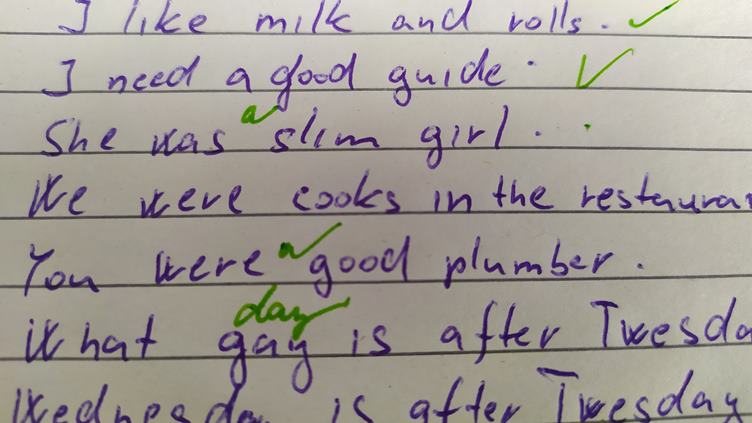 I like milk and rolls.
I need a good guide.
a
She was slim girl.
We were cooks in the restaura
a
You were good plumber.
day
What gay is after Twesda
Wednesday is after Twesday